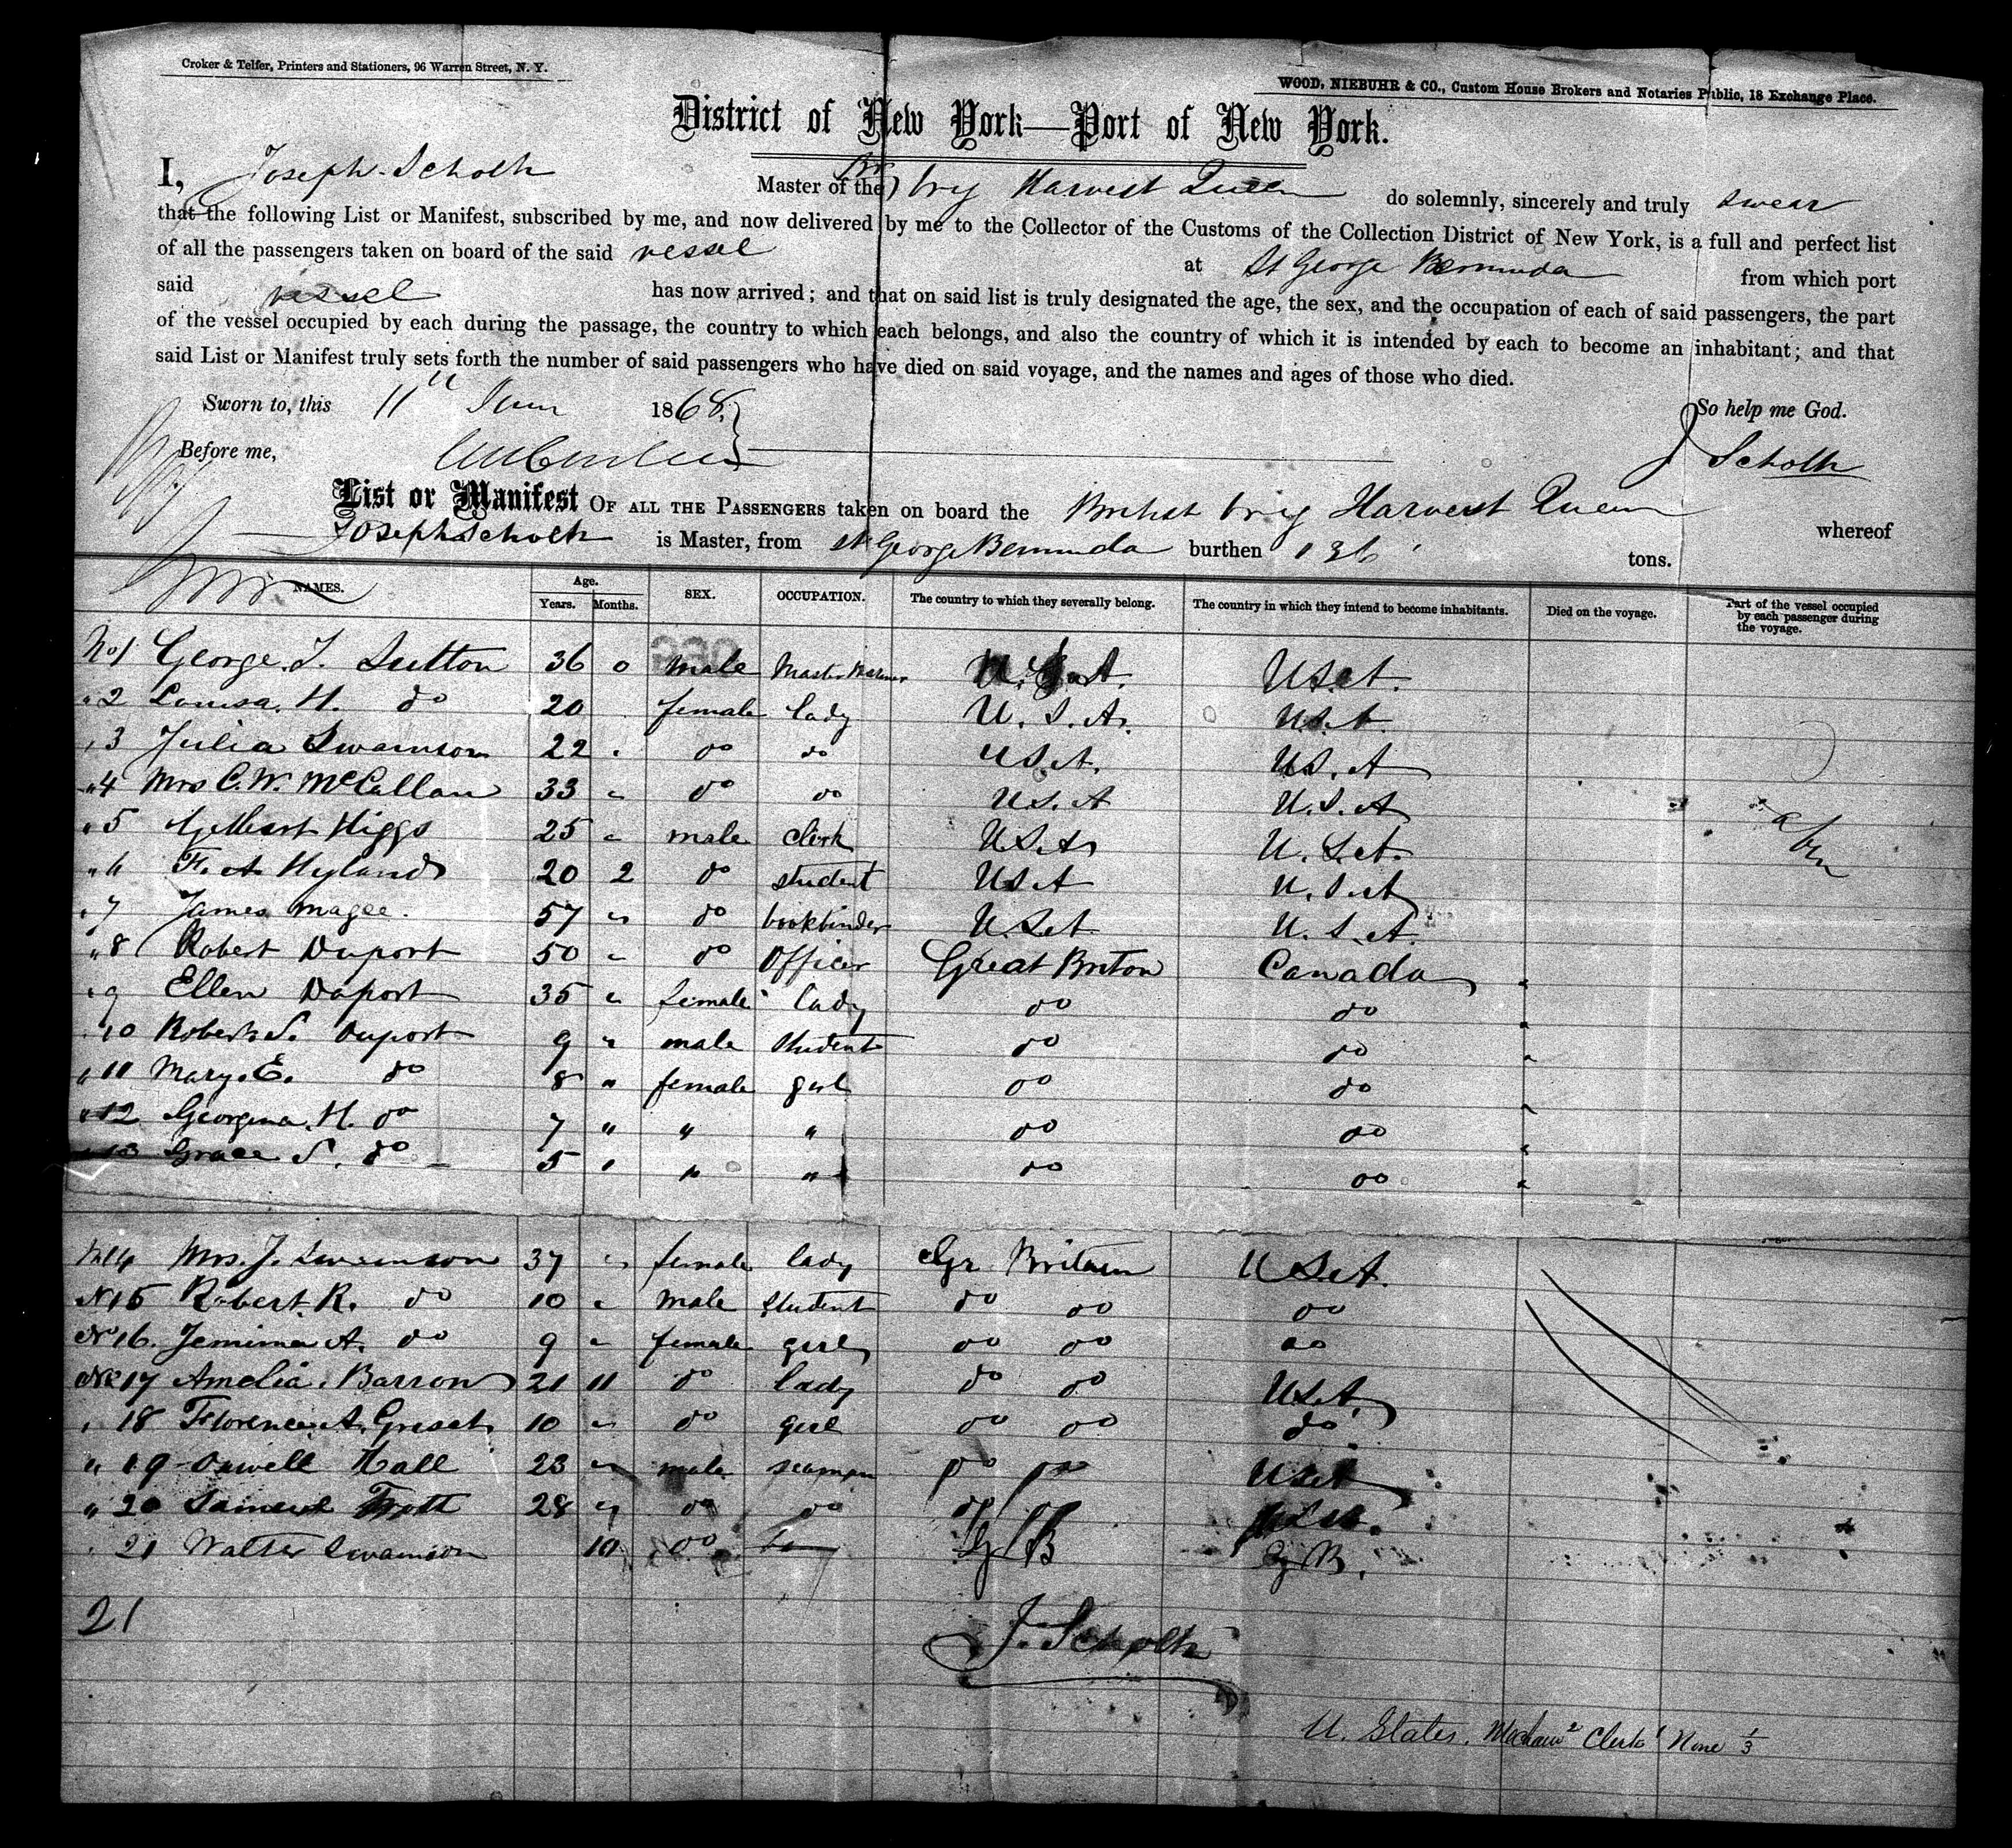 Croker & Telfer, Printers and Stationers, 96 Warren Street, N. Y.
WOOD, NIEBUHR & CO., Custom House Brokers and Notaries Public, 18 Exchange Place.
District of New York—Port of New York.
I, Joseph Scholh Master of the Br brig Harvest Queen do solemnly, sincerely and truly swear
that the following List or Manifest, subscribed by me, and now delivered by me to the Collector of the Customs of the Collection District of New York, is a full and perfect list
of all the passengers taken on board of the said vessel at St George Bermuda from which port
said vessel has now arrived; and that on said list is truly designated the age, the sex, and the occupation of each of said passengers, the part
of the vessel occupied by each during the passage, the country to which each belongs, and also the country of which it is intended by each to become an inhabitant; and that
said List or Manifest truly sets forth the number of said passengers who have died on said voyage, and the names and ages of those who died.
Sworn to, this 11" June 1868. So help me God.
Before me, J Scholh
List or Manifest OF ALL THE PASSENGERS taken on board the British brig Harvest Queen whereof
Joseph Scholh is Master, from St George Bermuda burthen 136 tons.
NAMES. Age. Years. Months. SEX. OCCUPATION. The country to which they severally belong. The country in which they intend to become inhabitants. Died on the voyage. Part of the vessel occupied by each passenger during the voyage.
No 1 George. J. Sutton 36 0 male Master Mariner U.S.A. U.S.A.
" 2 Louisa. H. do 20 female lady U.S.A. U.S.A.
" 3 Julia Swainson 22 " do do U.S.A. U.S.A
" 4 Mrs C. W. McCallan 33 " do do U.S.A U.S.A
" 5 Gilbert Higgs 25 " male clerk U.S.A U.S.A.
" 6 F. A Hyland 20 2 do student U S A U.S.A
" 7 James Magee. 57 " do bookbinder U.S.A U.S.A.
" 8 Robert Duport 50 " do Officer Great Briton Canada
" 9 Ellen Duport 35 " female lady do do
" 10 Robert S. Duport 9 " male Student do do
" 11 Mary. E. do 8 " female girl do do
" 12 Georgina. H. do 7 " " " do do
" 13 Grace S. do 5 " " " do do
No 14 Mrs. J. Swainson 37 " female lady Gr Britain U.S.A.
No 15 Robert. R. do 10 " male Student do do do
No 16. Jemima A. do 9 " female girl do do do
No 17 Amelia. Barron 21 11 do lady do do U.S.A.
" 18 Florence A. 10 " do girl do do do
" 19 Orwell Hall 23 " male seaman do do U.S.A
" 20 Samuel Trott 28 " do do do do U.S.A.
" 21 Walter Swainson 10 do G B G B.
21
J. Scholh
U. States. Clerks 1 None 1/3